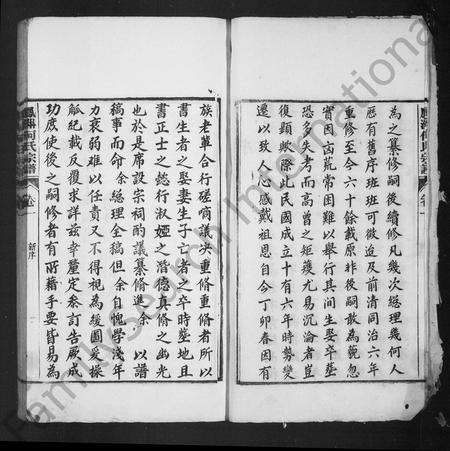 鳳湖何氏宗譜 卷一
為之纂修嗣後續修凡幾次經理幾何人
歷有舊序班班可徵迨及前清同治六年
重修至今六十餘載原非後嗣敢為藐忽
實因凶荒常困難以舉行其間生娶卒塟
恐多失考而高曾之矩矱尤易沉淪者豈
後顯歟際此民國成立十有六年時勢變
遷以致人心感戴祖恩自今丁卯春因有
族老華合行磋商議决重修重脩者所以
書生者之娶妻生子亡者之卒時塟地且
書正士之懿行淑媛之潛德真脩之幽光
也於是席設宗祠酌議纂脩進余 以譜
稿事而命余總理全稿但余自愧學淺年
力衰弱難以任責又不得視為緩圖爰採
觚紀載反覆求詳茲幸釐定叅訂告厥成
功庶使後之嗣修者有所藉手要皆易為
鳳湖何氏宗譜 卷一 新序
FamilySearch International